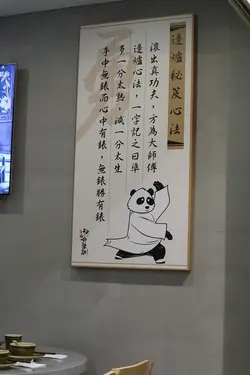 邊爐秘笈心法
滾出真功夫，方為大師傅
邊爐心法，一字記之曰準
多一分太熟，減一分太生
手中無錶而心中有錶，無錶勝有錶